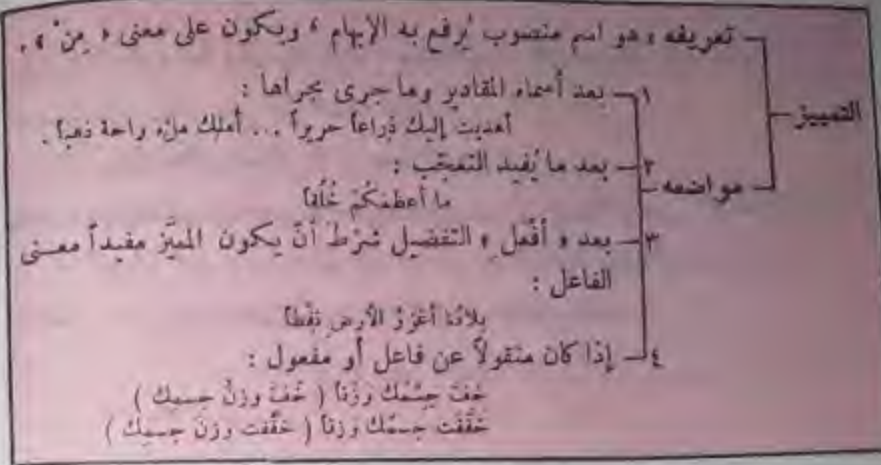 التمييز
تعريفه « هو اسم منصوب يُرفع به الإبهام ، ويكون على معنى « مِنْ » .
مواضعه
١ - بعد أسماء المقادير وما جرى مجراها :
أهديت إليك ذراعاً حريراً ... أملك ملء راحة ذهباً .
٢ - بعد ما يُفيد التعجّب :
ما أعظمَكُمْ خُلُقاً
٣ - بعد « أفْعل » التفضيل شرْطَ أنْ يكون المميَّز مفيداً معنى
الفاعل :
بلادُنا أغزرُ الأرضِ نِفْطاً
٤ - إذا كان منقولاً عن فاعل أو مفعول :
خفَّ جسْمُك وزْناً ( خَفَّ وزنُ جسمِك )
خفَّفت جسمَك وزناً ( خفَّفت وزنَ جسمِك )